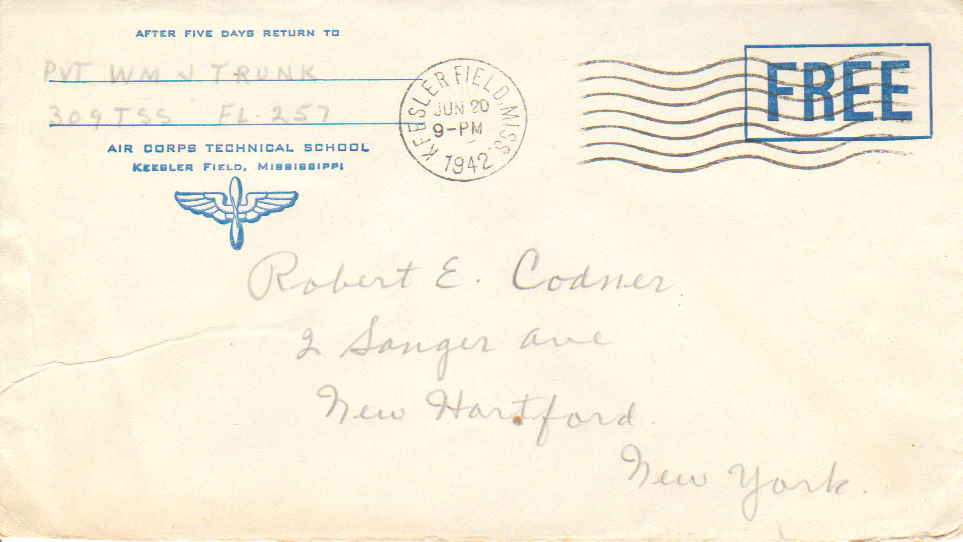 AFTER FIVE DAYS RETURN TO
PVT WM J TRUNK
309 TSS FL. 257
AIR CORPS TECHNICAL SCHOOL
KEESLER FIELD, MISSISSIPPI
KEESLER FIELD, MISS.
JUN 20
9-PM
1942
FREE
Robert E. Codner
2 Sanger Ave
New Hartford.
New York.